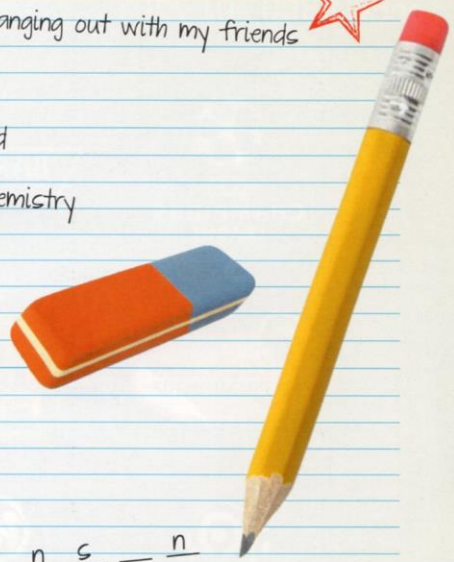 anging out with my friends
d
emistry
n s _ n